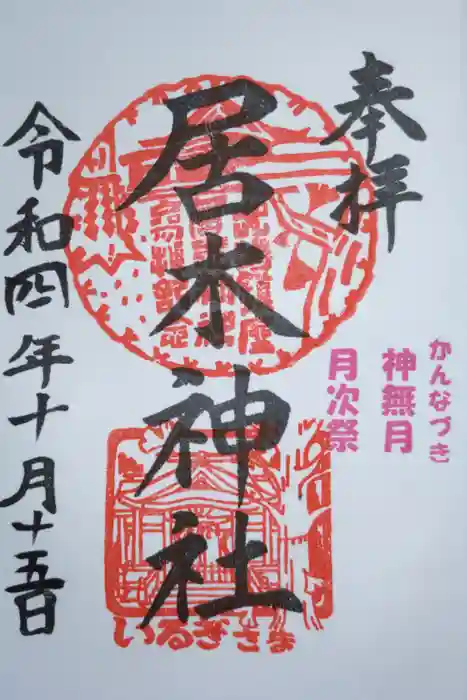 奉拝
かんなづき
神無月
月次祭
居木神社
いるぎさま
令和四年十月十五日